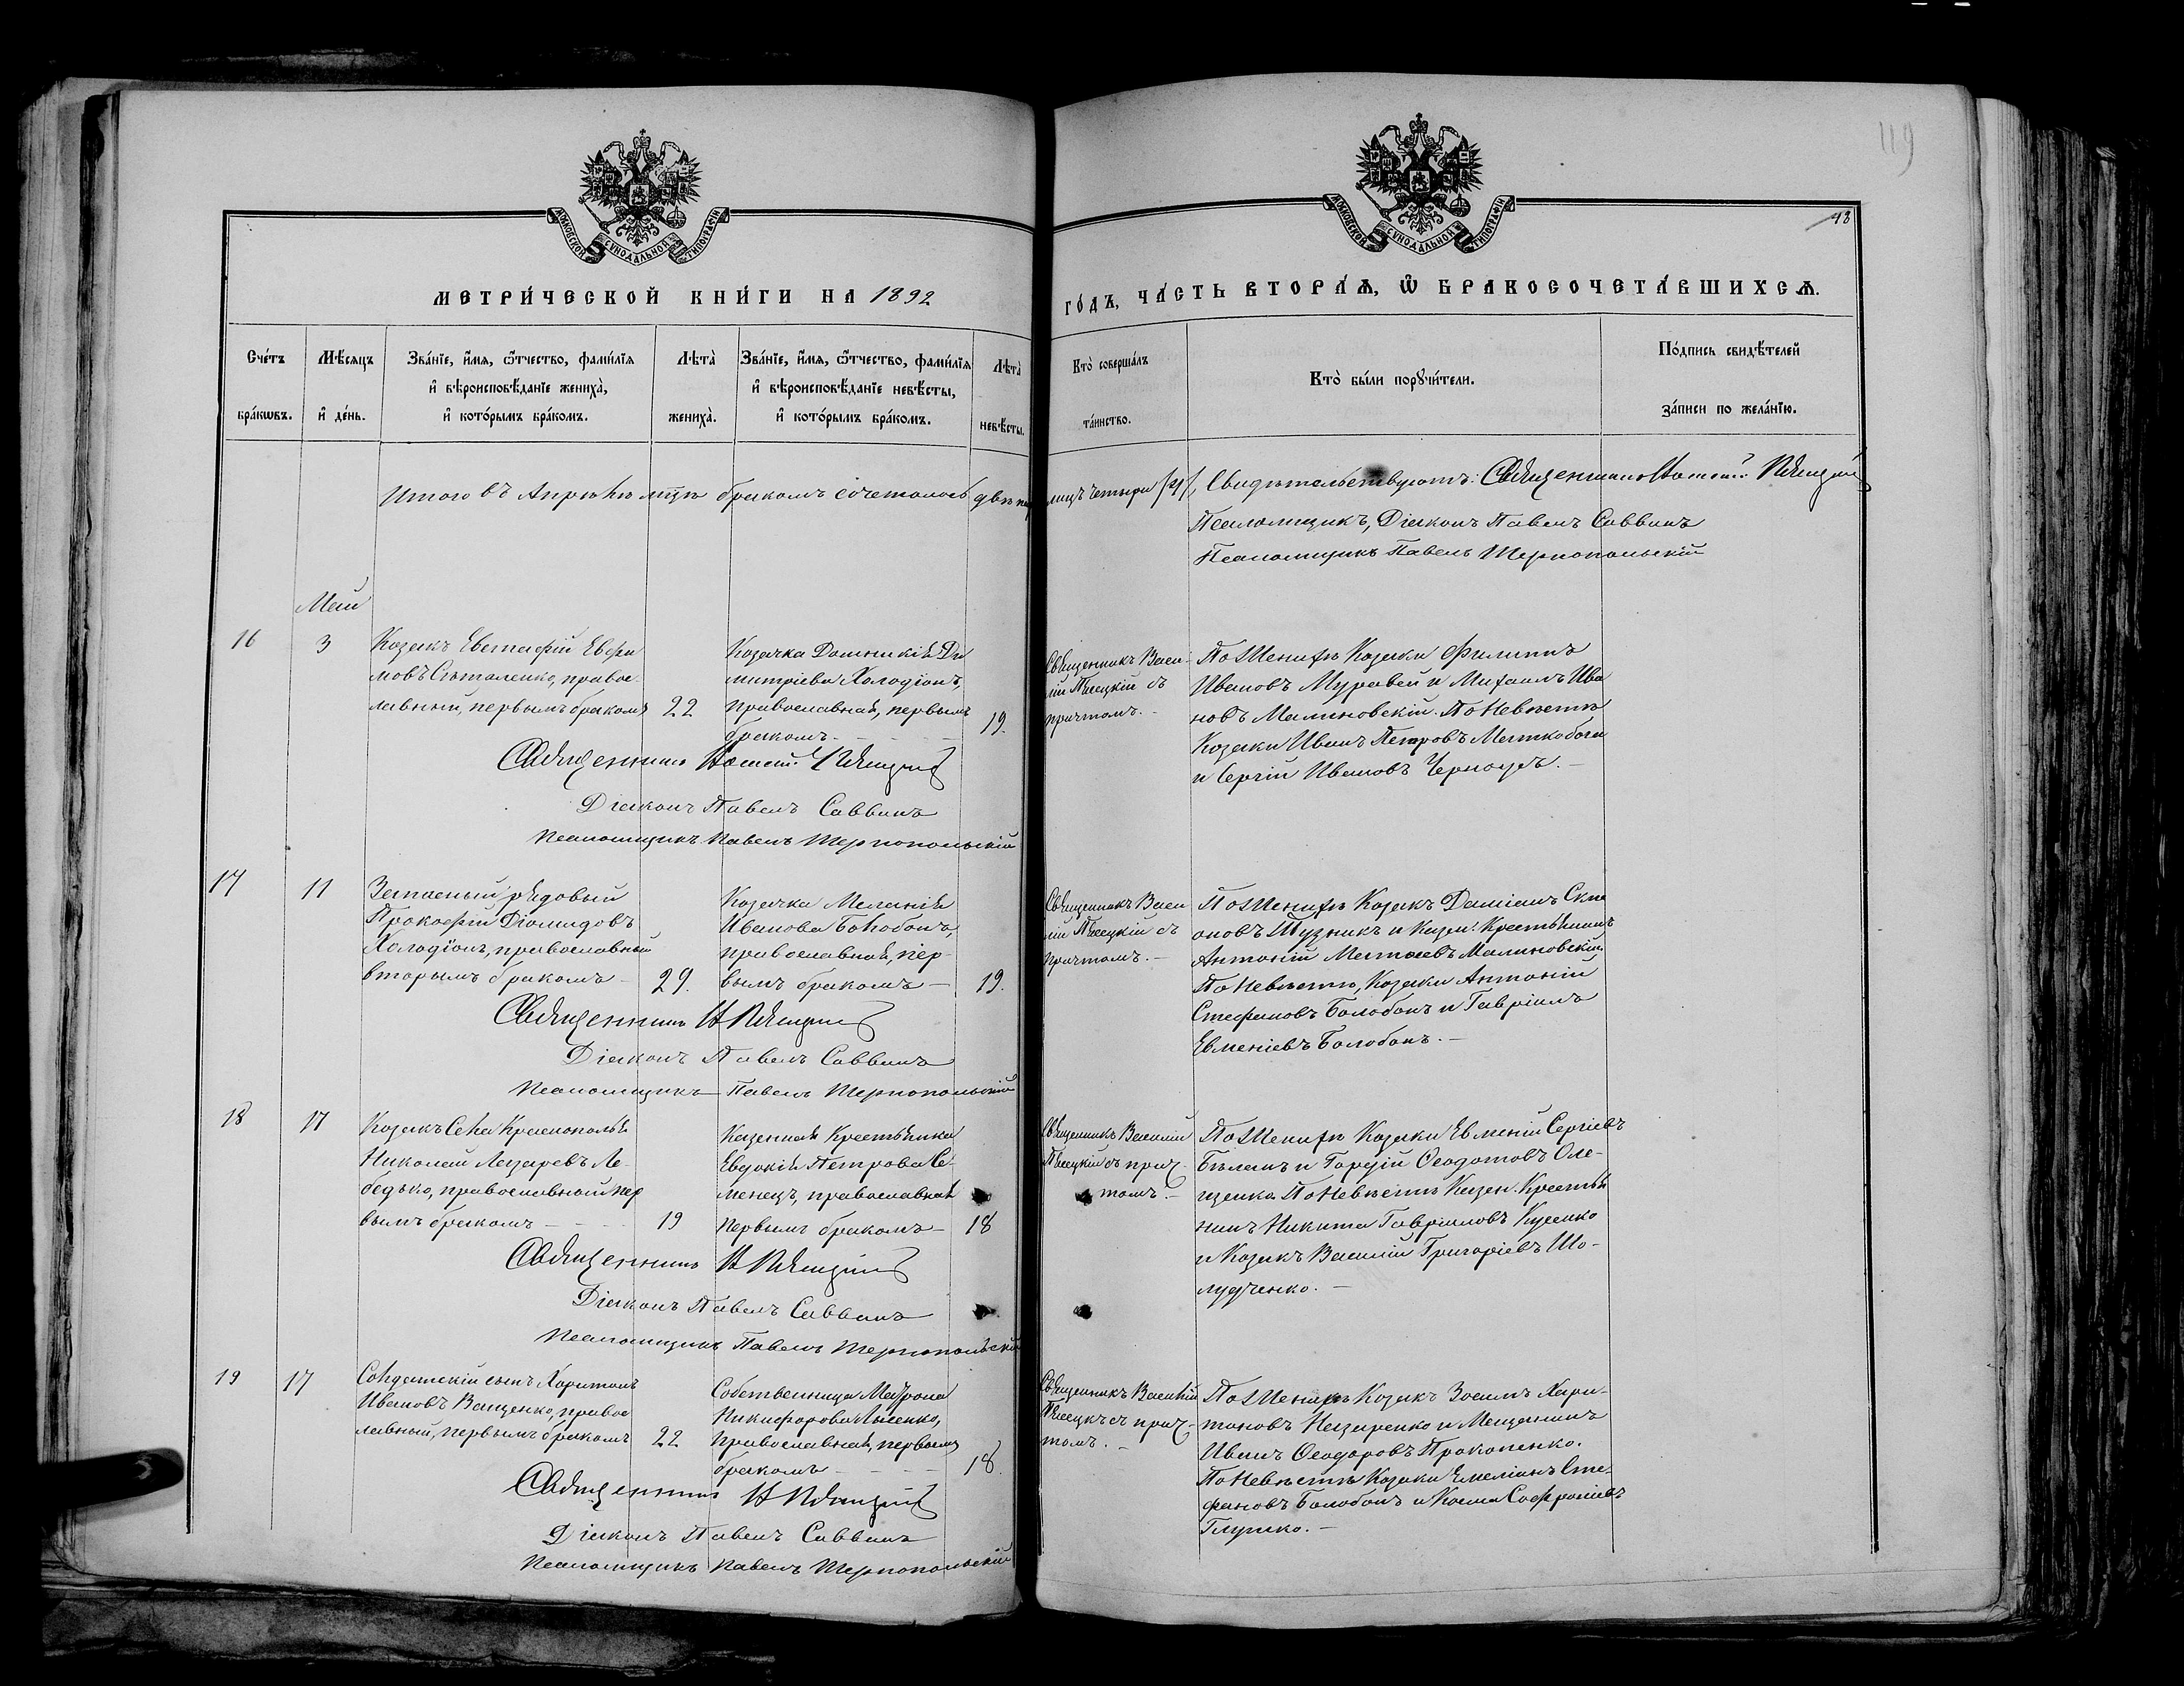 119
18
МОСКОВСКОЙ СУНОДАЛЬНОЙ ТИПОГРАФІИ
МОСКОВСКОЙ СУНОДАЛЬНОЙ ТИПОГРАФІИ
МЕТРИ́ЧЕСКОЙ КНИ́ГИ НА 1892
ГО́ДЪ, ЧА́СТЬ ВТОРА́Ѧ, Ѽ БРАКОСОЧЕТА́ВШИХСѦ.
Сче́тъ
бра́кѡвъ.
Мѣ́сяцъ
и҆ де́нь.
Зва́нїе, и҆́мя, ѻ҆́тчество, фами́лїя
и҆ вѣроисповѣ́данїе жениха̀,
и҆ кото́рымъ бра́комъ.
Лѣта̀
жениха̀.
Зва́нїе, и҆́мя, ѻ҆́тчество, фами́лїя
и҆ вѣроисповѣ́данїе невѣ́сты,
и҆ кото́рымъ бра́комъ.
Лѣта̀
невѣ́сты.
Кто̀ соверша́лъ
та́инство.
Кто̀ бы́ли порꙋчи́тели.
По́дпись свидѣ́телей
за́писи по жела́нїю.
Итого въ Апрѣлѣ м-цѣ бракомъ сочеталось двѣ
лицъ четыре /4/, Свидѣтельствуютъ: Священникъ
Псаломщикъ, Діаконъ Павелъ Саввинъ
Псаломщикъ Павелъ Тернопольскій
Май
16
3
Козакъ Евстафій Евфи
мовъ Сѣталенко, правос-
лавный, первымъ бракомъ
22
Козачка Домникія Ди
митріева Холодіонъ,
православная, первымъ
бракомъ.
19.
Священникъ Васи-
лій Пясецкій съ
причтомъ. –
По Женихѣ Козаки Филиппъ
Ивановъ Муравей и Михаилъ Ива
новъ Малиновскій. По Невѣстѣ
Козаки Иванъ Петровъ Маткобога
и Сергій Ивановъ Черноусъ. –
Священникъ
Діаконъ Павелъ Саввинъ
Псаломщикъ Павелъ Тернопольскій
17
11
Запасный рядовый
Прокофій Діомидовъ
Холодіонъ, православный
вторымъ бракомъ
29.
Козачка Меланія
Иванова Болобонъ,
православная, пер-
вымъ бракомъ –
19.
Священникъ Васи
лій Пясецкій съ
причтомъ. –
По Женихѣ Козакъ Даміанъ Ски
оновъ Тузникъ и Казен: Крестьянинъ
Антоній Матѳеевъ Малиновскій
По Невѣстѣ, Козаки Антоній
Стефановъ Болобонъ и Гавріилъ
Евменіевъ Болобонъ. –
Священникъ
Діаконъ Павелъ Саввинъ
Псаломщикъ Павелъ Тернопольскій
18
17
Козакъ Села Краснополья
Николай Лазаревъ Ле-
бедько, православный пер
вымъ бракомъ
19
Казенная Крестьянка
Евдокія Петрова Се-
менецъ, православная
первымъ бракомъ –
18
Священникъ Василій
Пясецкій съ прич-
томъ. –
По Женихѣ Козаки Евменій Сергіевъ
Бѣланъ и Гордій Ѳеодотовъ Оле-
щенко По Невѣстѣ Казен. Крестья
нинъ Никита Гавріиловъ Куценко
и Козакъ Василій Григоріевъ Шо-
лудченко. –
Священникъ
Діаконъ Павелъ Саввинъ
Псаломщикъ Павелъ Тернопольскій
19
17
Солдатскій сынъ Харитонъ
Ивановъ Ващенко, правос
лавный, первымъ бракомъ
22
Собственница Матрона
Никифорова Лысенко,
православная, первымъ
бракомъ
18.
Священникъ Василій
Пясецкъ съ прич-
томъ. –
По Женихѣ Козакъ Зосимъ Хари-
тоновъ Назаренко и Мещанинъ
Иванъ Ѳеодоровъ Прокопенко.
По Невѣстѣ Козаки Емеліанъ Сте-
фановъ Болобонъ и Косма Софроніевъ
Глушко. –
Священникъ
Діаконъ Павелъ Саввинъ
Псаломщикъ Павелъ Тернопольскій